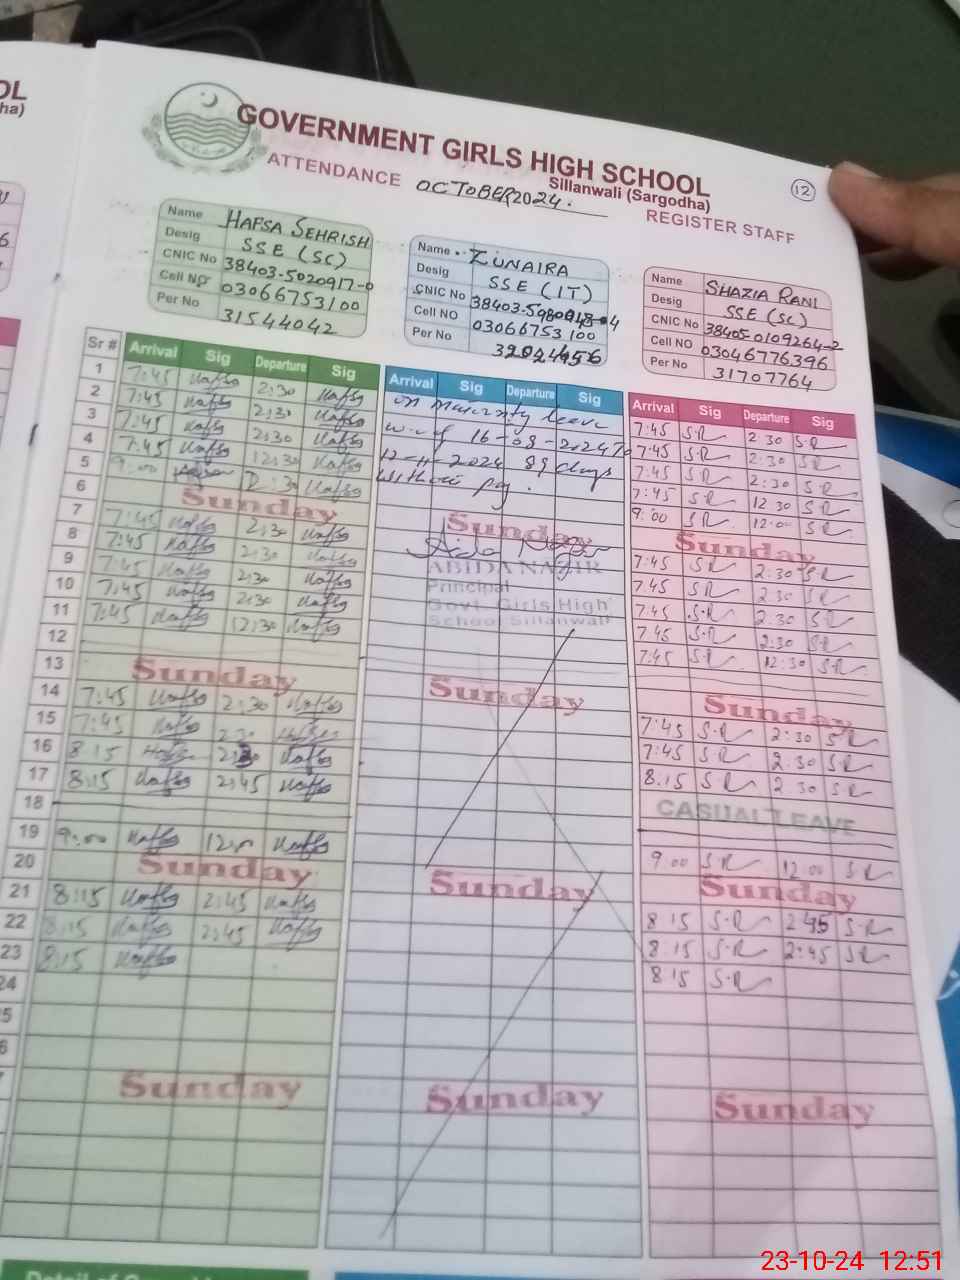 OL
ha)
GOVERNMENT GIRLS HIGH SCHOOL
Sillanwali (Sargodha)
12
ATTENDANCE OCTOBER 2024. REGISTER STAFF
Name HAFSA SEHRISH
Desig SSE (SC)
CNIC No 38403-5020917-0
Cell No 03066753100
Per No 31544042
Name ZUNAIRA
Desig SSE (IT)
CNIC No
Cell NO 03066753100
Per No
Name SHAZIA RANI
Desig SSE (SC)
CNIC No 38405-0109264-2
Cell NO 03046776396
Per No 31707764
Sr # Arrival Sig Departure Sig Arrival Sig Departure Sig Arrival Sig Departure Sig
1 7:45 Hafsa 2:30 Hafsa on leave 7:45 S.R 2:30 S.R
2 7:45 Hafsa 2:30 Hafsa w.e.f 16-08-2024 To 7:45 S.R 2:30 S.R
3 7:45 Hafsa 2:30 Hafsa 12-11-2024 89 days 7:45 S.R 2:30 S.R
4 7:45 Hafsa 12:30 Hafsa without pay. 7:45 S.R 12:30 S.R
5 9:00 Hafsa Hafsa 9:00 S.R 12:00 S.R
6 Sunday Sunday Sunday
7 7:45 Hafsa 2:30 Hafsa 7:45 S.R 2:30 S.R
8 7:45 Hafsa 2:30 Hafsa ABIDA NASIR 7:45 S.R 2:30 S.R
9 7:45 Hafsa 2:30 Hafsa Principal 7:45 S.R 2:30 S.R
10 7:45 Hafsa 2:30 Hafsa Govt. Girls High 7:45 S.R 2:30 S.R
11 7:45 Hafsa 12:30 Hafsa School Sillanwali 7:45 S.R 12:30 S.R
12
13 Sunday Sunday Sunday
14 7:45 Hafsa 2:30 Hafsa 7:45 S.R 2:30 S.R
15 7:45 Hafsa 2:30 Hafsa 7:45 S.R 2:30 S.R
16 8:15 Hafsa Hafsa 8:15 S.R 2:30 S.R
17 8:15 Hafsa 2:45 Hafsa CASUAL LEAVE
18
19 9:00 Hafsa Hafsa 9:00 S.R 12:00 S.R
20 Sunday Sunday Sunday
21 8:15 Hafsa 2:45 Hafsa 8:15 S.R 2:45 S.R
22 8:15 Hafsa 2:45 Hafsa 8:15 S.R 2:45 S.R
23 8:15 Hafsa 8:15 S.R
24
5
6
Sunday Sunday Sunday
23-10-24 12:51